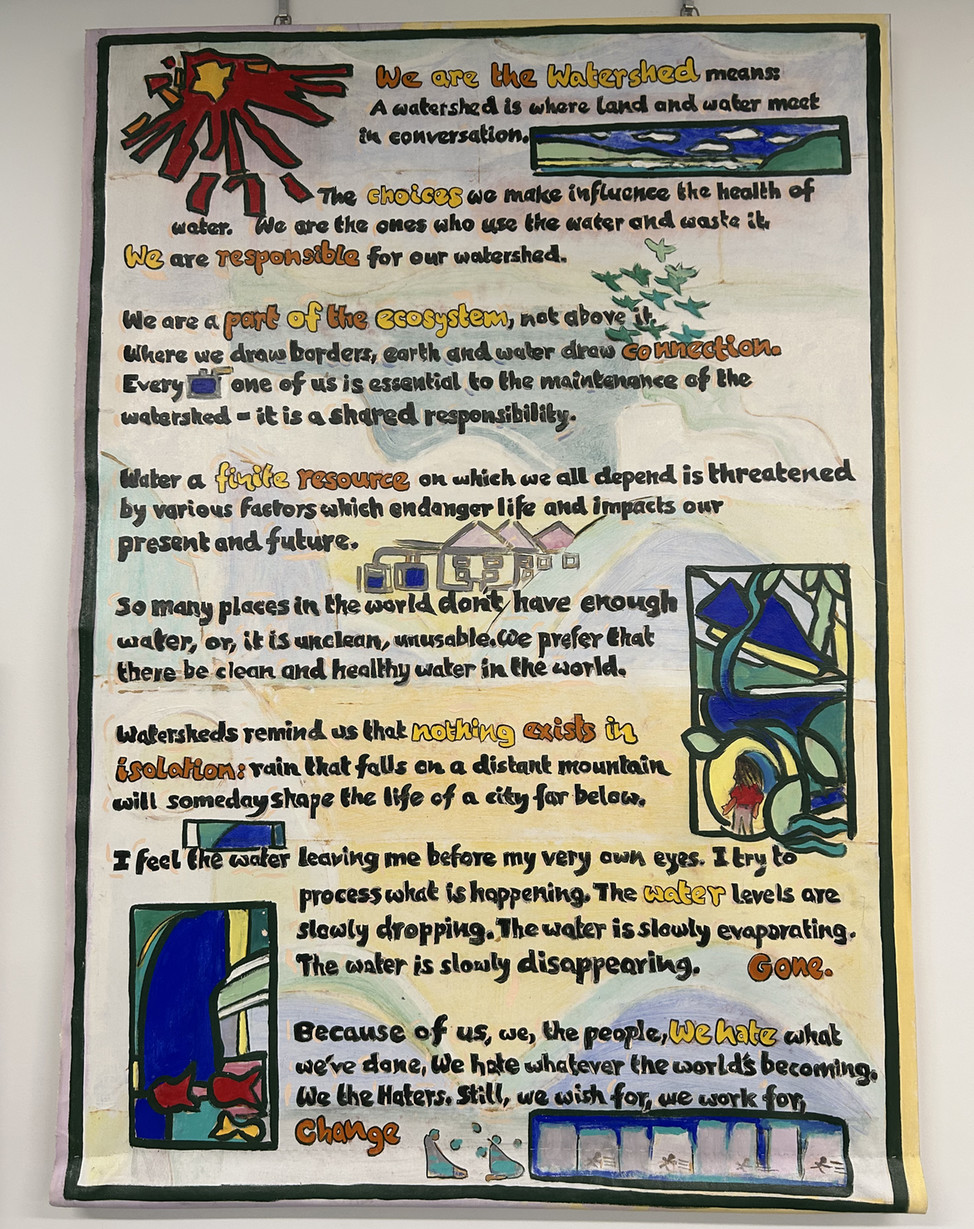 We are the Watershed means:
A watershed is where land and water meet
in conversation.
The choices we make influence the health of
water. We are the ones who use the water and waste it.
We are responsible for our watershed.
We are a part of the ecosystem, not above it.
Where we draw borders, earth and water draw connection.
Every one of us is essential to the maintenance of the
watershed - it is a shared responsibility.
Water a finite resource on which we all depend is threatened
by various factors which endanger life and impacts our
present and future.
So many places in the world don't have enough
water, or, it is unclean, unusable. We prefer that
there be clean and healthy water in the world.
Watersheds remind us that nothing exists in
isolation: rain that falls on a distant mountain
will someday shape the life of a city far below.
I feel the water leaving me before my very own eyes. I try to
process what is happening. The water levels are
slowly dropping. The water is slowly evaporating.
The water is slowly disappearing. Gone.
Because of us, we, the people, We hate what
we've done, We hate whatever the world's becoming.
We the Haters. Still, we wish for, we work for,
Change